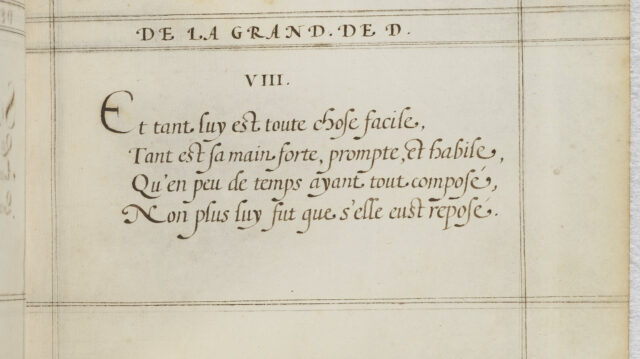 DE LA GRAND. DE D.
VIII.
Et tant luy est toute chose facile,
Tant est sa main forte, prompte, et habile,
Qu'en peu de temps ayant tout composé,
Non plus luy fut que s'elle eust reposé.